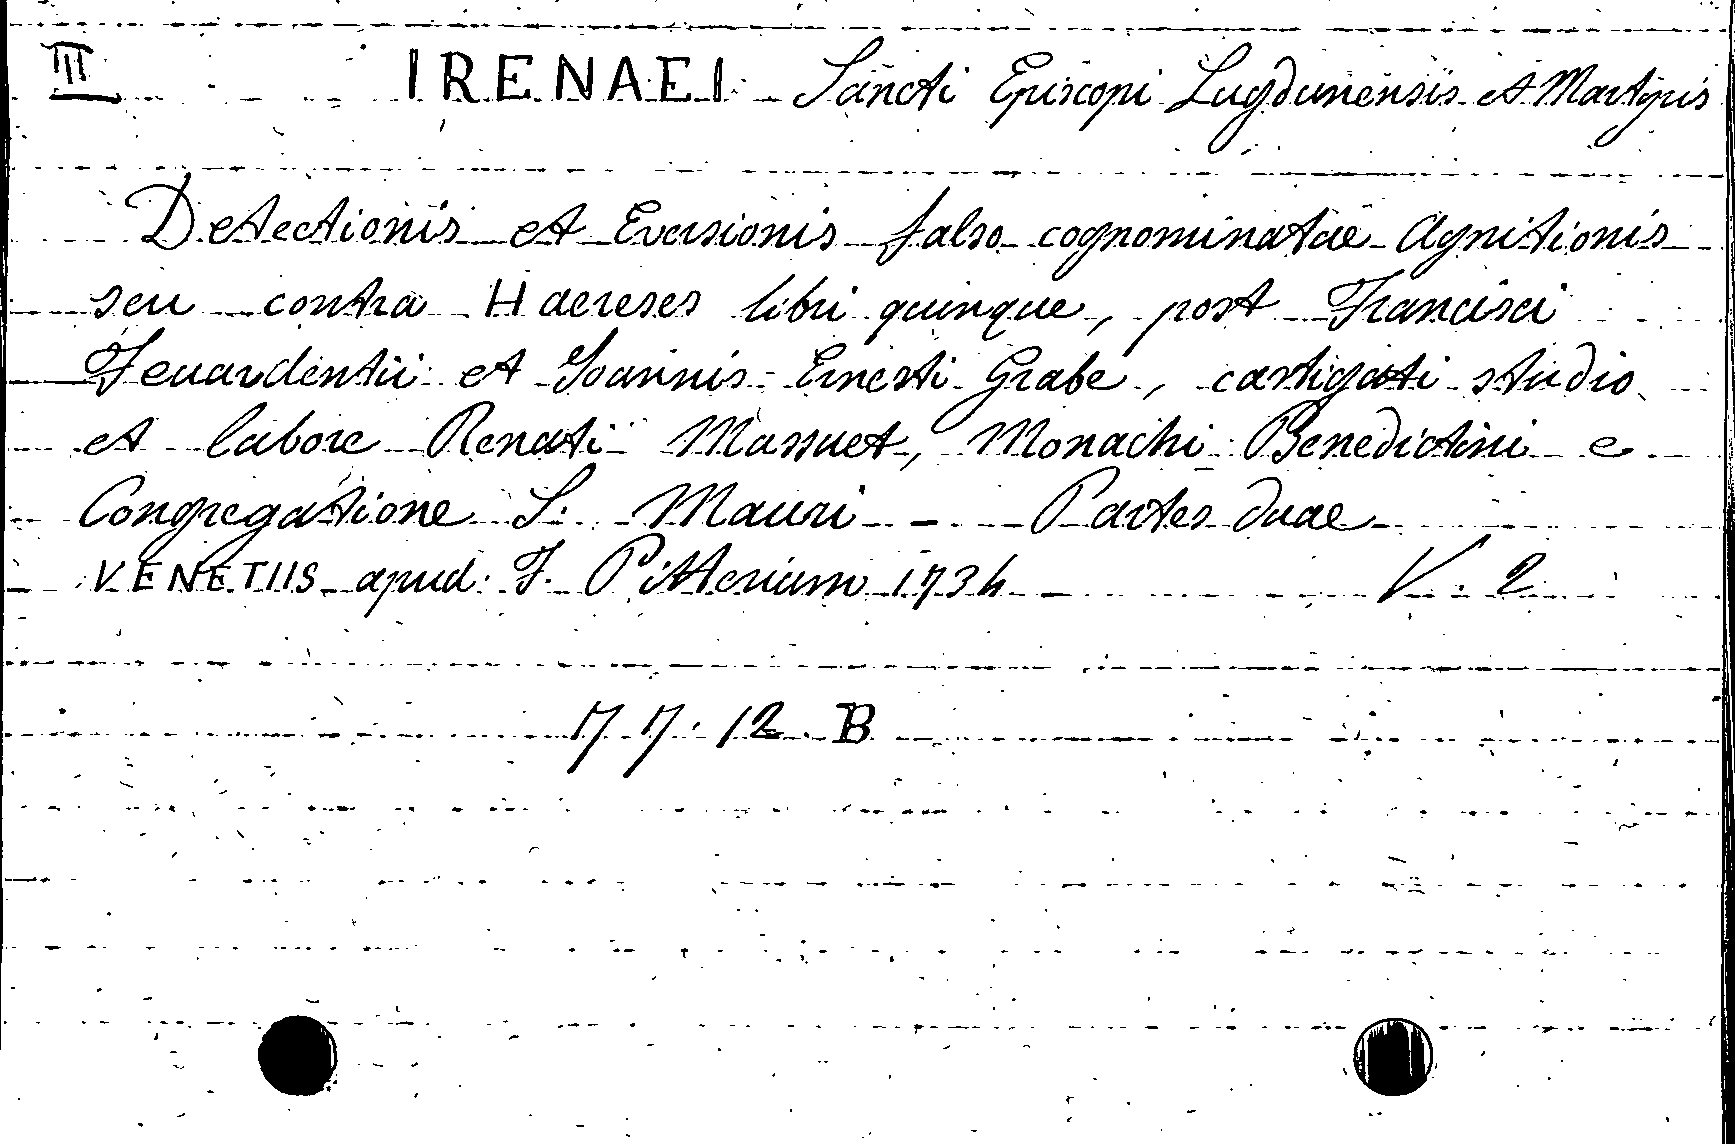 III IRENAEI Sancti Episcopi Lugdunensis et Martyris
Detectionis et Eversionis falso cognominatae Agnitionis
seu contra Haereses libri quinque, post Francisci
Feuardentii et Ioannis Ernesti Grabe, castigati studio
et labore Renati Massuet, Monachi Benedictini e
Congregatione S. Mauri - Partes duae
VENETIIS apud F. Pitterium 1734 V. 2
77.12.B